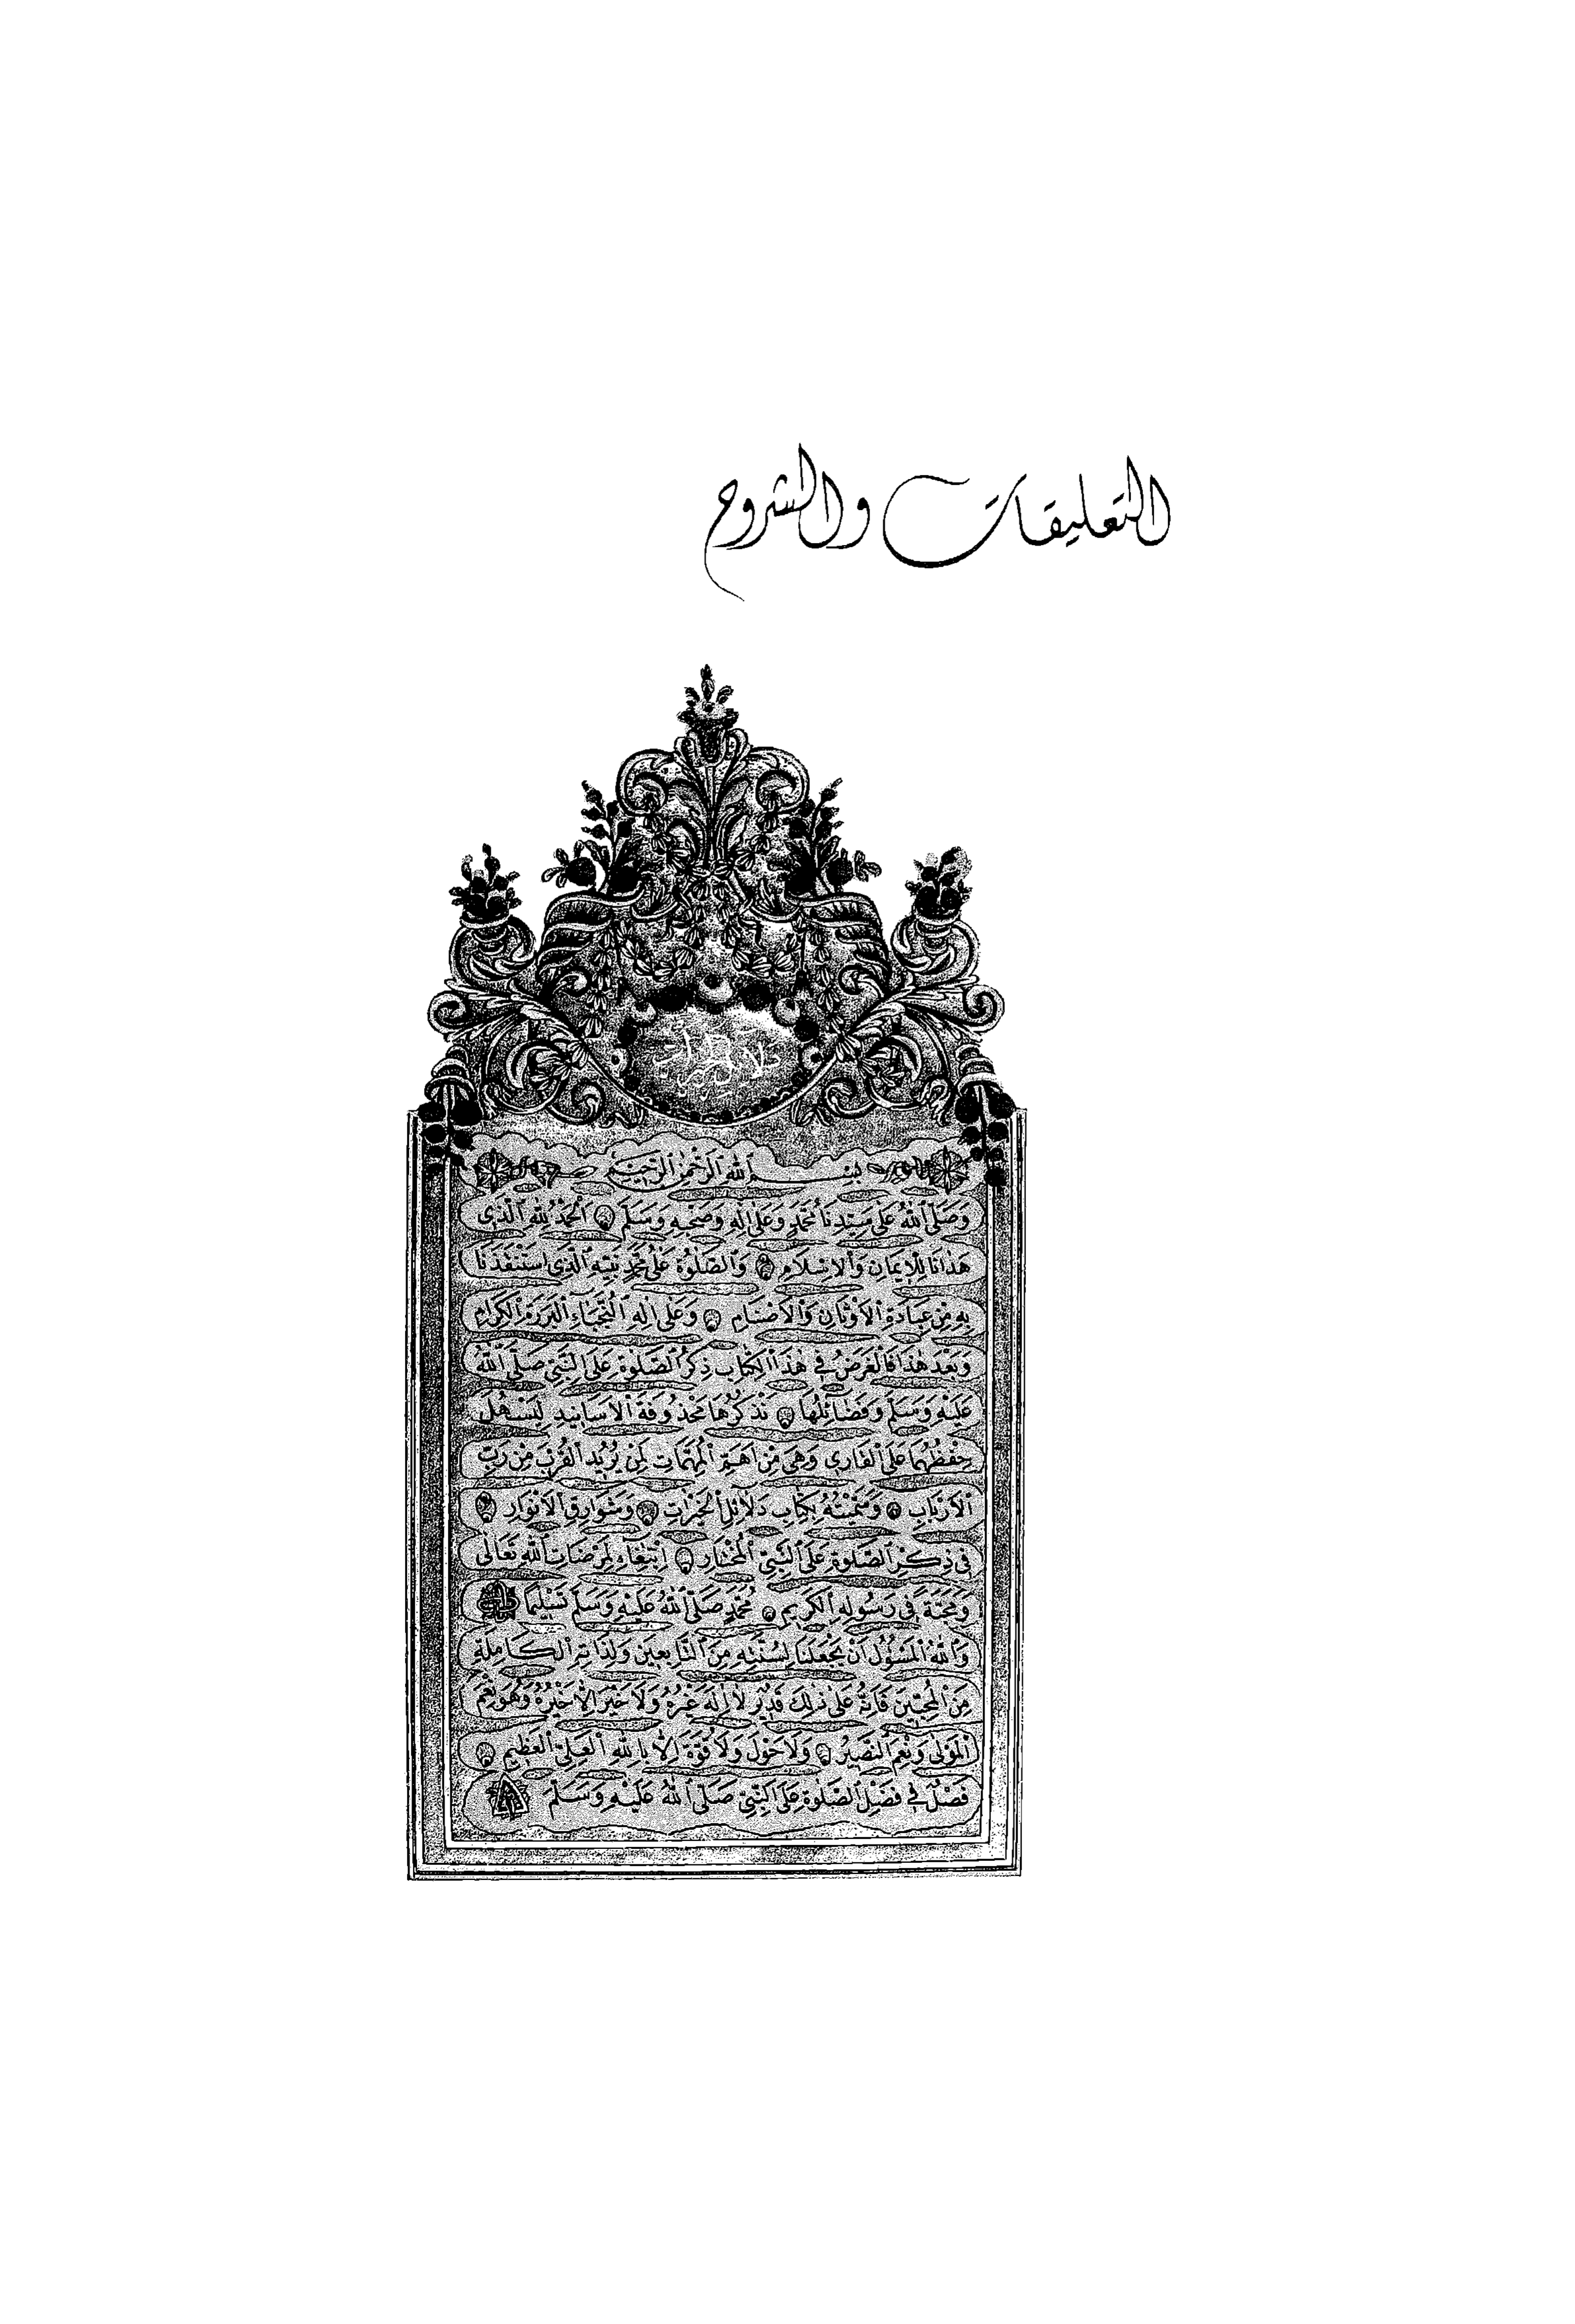 التعليقات والشروح
دلائل الخيرات
بِسْمِ ٱللهِ ٱلرَّحْمٰنِ ٱلرَّحِيْمِ
وَصَلَّى ٱللهُ عَلٰى سَيِّدِنَا مُحَمَّدٍ وَعَلٰى اٰلِهِ وَصَحْبِهِ وَسَلَّمَ اَلْحَمْدُ لِلّٰهِ ٱلَّذِى
هَدَانَا لِلْاِيمَانِ وَٱلْاِسْلَامِ وَٱلصَّلٰوةُ عَلٰى مُحَمَّدٍ نَبِيِّهِ ٱلَّذِى ٱسْتَنْقَذَنَا
بِهِ مِنْ عِبَادَةِ ٱلْاَوْثَانِ وَٱلْاَصْنَامِ وَعَلٰى اٰلِهِ ٱلنُّجَبَاءِ ٱلْبَرَرَةِ ٱلْكِرَامِ
وَبَعْدَ هٰذَا فَٱلْغَرَضُ فِى هٰذَا ٱلْكِتَابِ ذِكْرُ ٱلصَّلٰوةِ عَلَى ٱلنَّبِىِّ صَلَّى ٱللهُ
عَلَيْهِ وَسَلَّمَ وَفَضَائِلُهَا نَذْكُرُهَا مَحْذُوفَةَ ٱلْاَسَانِيدِ لِيَسْهُلَ
حِفْظُهُمَا عَلَى ٱلْقَارِى وَهِىَ مِنْ اَهَمِّ ٱلْمُهِمَّاتِ لِمَنْ يُرِيدُ ٱلْقُرْبَ مِنْ رَبِّ
ٱلْاَرْبَابِ وَسَمَّيْتُهُ بِكِتَابِ دَلَائِلِ ٱلْخَيْرَاتِ وَشَوَارِقِ ٱلْاَنْوَارِ
فِى ذِكْرِ ٱلصَّلٰوةِ عَلَى ٱلنَّبِىِّ ٱلْمُخْتَارِ اِبْتِغَاءً لِمَرْضَاتِ ٱللهِ تَعَالٰى
وَمَحَبَّةً فِى رَسُولِهِ ٱلْكَرِيمِ مُحَمَّدٍ صَلَّى ٱللهُ عَلَيْهِ وَسَلَّمَ تَسْلِيمًا
وَٱللهُ ٱلْمَسْؤُلُ اَنْ يَجْعَلَنَا لِسُنَّتِهِ مِنَ ٱلتَّابِعِينَ وَلِذَاتِهِ ٱلْكَامِلَةِ
مِنَ ٱلْمُحِبِّينَ فَاِنَّهُ عَلٰى ذٰلِكَ قَدِيرٌ لَا اِلٰهَ غَيْرُهُ وَلَا خَيْرَ اِلَّا خَيْرُهُ وَهُوَ نِعْمَ
ٱلْمَوْلٰى وَنِعْمَ ٱلنَّصِيرُ وَلَا حَوْلَ وَلَا قُوَّةَ اِلَّا بِاللهِ ٱلْعَلِىِّ ٱلْعَظِيمِ
فَصْلٌ فِى فَضْلِ ٱلصَّلٰوةِ عَلَى ٱلنَّبِىِّ صَلَّى ٱللهُ عَلَيْهِ وَسَلَّمَ